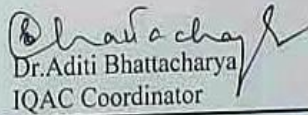 Bhattacharya
Dr.Aditi Bhattacharya
IQAC Coordinator